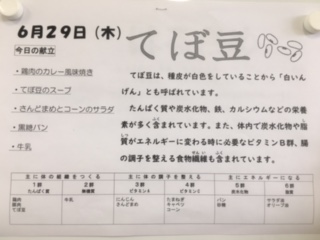 6月29日（木）
てぼ豆
今日の献立
・鶏肉のカレー風味焼き
・てぼ豆のスープ
・さんどまめとコーンのサラダ
・黒糖パン
・牛乳
てぼ豆は、種皮が白色をしていることから「白いん
げん」とも呼ばれています。
たんぱく質や炭水化物、鉄、カルシウムなどの栄養
素が多く含まれています。また、体内で炭水化物や脂
質がエネルギーに変わる時に必要なビタミンB群、腸
の調子を整える食物繊維も含まれています。
主に体の組織をつくる 主に体の調子を整える 主にエネルギーになる
1群 2群 3群 4群 5群 6群
たんぱく質 無機質 ビタミンA ビタミンC 炭水化物 脂質
鶏肉 牛乳 にんじん たまねぎ パン サラダ油
豚肉 さんどまめ キャベツ オリーブ油
てぼ豆 コーン